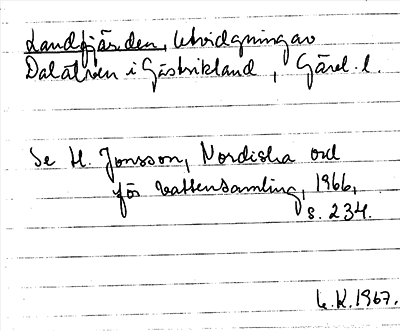 Landfjärden, Utvidgning av
Dalälven i Gästrikland, Gävl. l.
Se H. Jonsson, Nordiska ord
för vattensamling, 1966,
s. 234.
L.K. 1967.